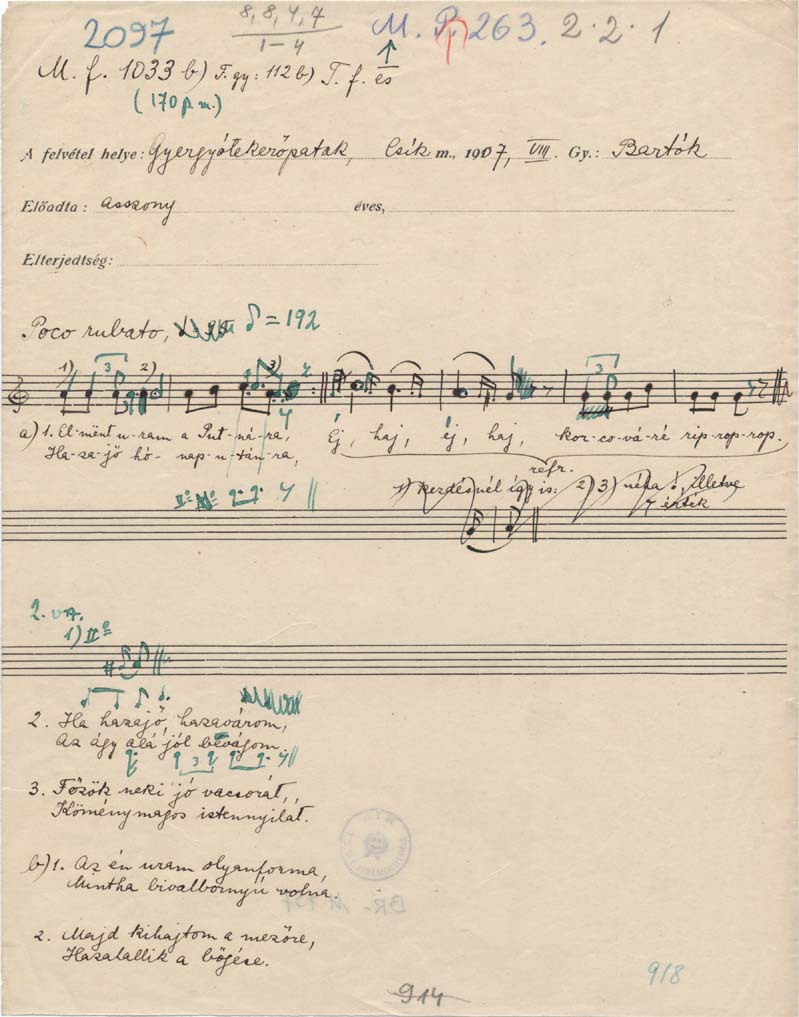 2097 8, 8, 4, 7 M. P. 263. 2.2.1
1-4
M. f. 1033 b) F. gy: 112 b) T. f. és
(170 p. m.)
A felvétel helye: Gyergyótekerőpatak, Csík m., 1907, VIII. Gy.: Bartók
Előadta: asszony éves,
Elterjedtség:
Poco rubato, = 192
1) 3 2) 3) 3
a) 1. El-ment u-ram a Put-ná-ra, Éj, haj, éj, haj, kor-co-vá-ré rip-rop-rop.
Ha-za-jő hó-nap-u-tán-ra,
refr.
1) kezdésnél így is: 2) 3) néha illetve
érték
2. va.
1) II°
2. Ha hazajő, hazavárom,
Az ágy alá jól bévágom.
3
3. Főzök neki jó vacsorát,
Köménymagos istennyilát.
b) 1. Az én uram olyanforma,
Mintha bivalbornyú volna.
BR- M 737
2. Majd kihajtom a mezőre,
Hazalallik a böjére.
918
914